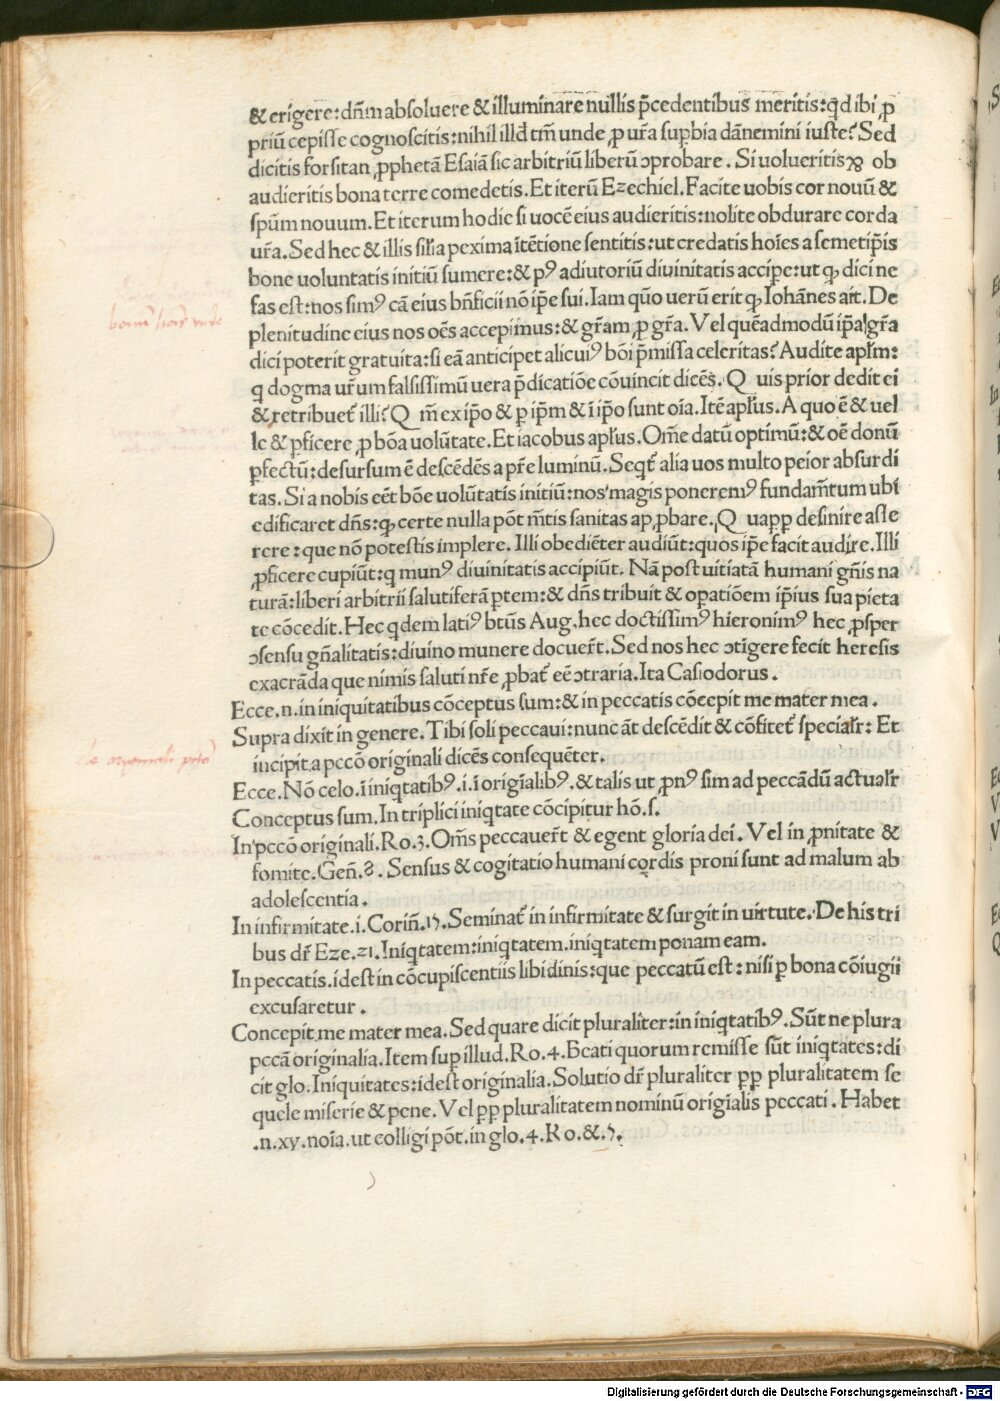 & erigere: dñm absoluere & illuminare nullis p̃cedentibus meritis: qd ibi ꝓ
priũ cepisse cognoscitis: nihil illđ tm̃ unde ꝓ ur̃a sup̱bia dãnemini iuste? Sed
dicitis forsitan ꝓphetã Esaiã sic arbitriũ liberũ ↄprobare. Si uolueritis ob
audieritis bona terre comedetis. Et iterũ Ezechiel. Facite uobis cor nouũ &
spũm nouum. Et iterum hodie si uocẽ eius audieritis: nolite obdurare corda
ur̃a. Sed hec & illis sil̃ia pexima ĩtẽtione sentitis: ut credatis hoĩes a semetip̃is
bone uoluntatis initiũ sumere: & pꝰ adiutoriũ diuinitatis accipe: ut ꝙ dici ne
fas est: nos simꝰ cã eius bñficii nõ ip̃e sui. Iam quõ uerũ erit ꝙ Iohãnes ait. De
plenitudine eius nos oẽs accepimus: & gr̃am ꝓ gr̃a. Vel quẽadmodũ ip̃a gr̃a
dici poterit gratuita: si eã anticipet alicuiꝰ bõi p̃missa celeritas? Audite apl̃m:
q dogma ur̃um falsissimũ uera p̃dicatiõe cõuincit dicẽs. Q uis prior dedit ei
& retribuet̃ illi? Q m̃ ex ip̃o & ꝑ ip̃m & ĩ ip̃o sunt oĩa. Itẽ apl̃us. A quo ẽ & uel
le & ꝑficere ꝓ bõa uolũtate. Et iacobus apl̃us. Om̃e datũ optimũ: & oẽ donũ
ꝑfectũ: desursum ẽ descẽdẽs a pr̃e luminũ. Seqt̃ alia uos multo peior absurdi
tas. Si a nobis eẽt bõe uolũtatis initiũ: nos magis poneremꝰ fundam̃tum ubi
edificaret dñs: ꝙ certe nulla põt m̃tis sanitas apꝓbare. Q uaꝑꝑ desinire asse
rere: que nõ potestis implere. Illi obediẽter audiũt: quos ip̃e facit audire. Illi
ꝓficere cupiũt: q munꝰ diuinitatis accipiũt. Nã post uitiatã humani gñis na
turã: liberi arbitrii salutiferã ꝑtem: & dñs tribuit & oꝑatiõem ip̃ius sua pieta
te cõcedit. Hec qdem latiꝰ btũs Aug. hec doctissimꝰ hieronimꝰ hec ꝓsper
ↄsensu gñalitatis: diuino munere docuer̃t. Sed nos hec ↄtĩgere fecit heresis
exacrãda que nimis saluti nr̃e ꝓbat̃ eẽ ↄtraria. Ita Casiodorus.
Ecce.n. in iniquitatibus cõceptus sum: & in peccatis cõcepit me mater mea.
Supra dixit in genere. Tibi soli peccaui: nunc ãt descẽdit & cõfitet̃ special̃r: Et
incipit a pccõ originali dicẽs consequẽter.
Ecce. Nõ celo. ĩ iniqtatibꝰ.i. ĩ origĩalibꝰ. & talis ut ꝓnꝰ sim ad peccãdũ actual̃r
Conceptus sum. In triplici iniqtate cõcipitur hõ.s.
In pccõ originali. Ro.3. Om̃s peccauer̃t & egent gloria dei. Vel in ꝓnitate &
fomite. Geñ.8. Sensus & cogitatio humani cordis proni sunt ad malum ab
adolescentia.
In infirmitate.i. Coriñ.15. Seminat̃ in infirmitate & surgit in uirtute. De his tri
bus dr̃ Eze.21. Iniqtatem: iniqtatem. iniqtatem ponam eam.
In peccatis. idest in cõcupiscentiis libidinis: que peccatũ est: nisi ꝑ bona cõiugii
excusaretur.
Concepit me mater mea. Sed quare dicit pluraliter: in iniqtatibꝰ. Sũt ne plura
pccã originalia. Item sup̱ illud. Ro.4. Beati quorum remisse sũt iniqtates: di
cit glo. Iniquitates: idest originalia. Solutio dr̃ pluraliter ꝑꝑ pluralitatem se
quele miserie & pene. Vel ꝑꝑ pluralitatem nominũ origĩalis peccati. Habet
.n.xv. noĩa. ut colligi põt. in glo.4. Ro.&.5.
de originali pctõ